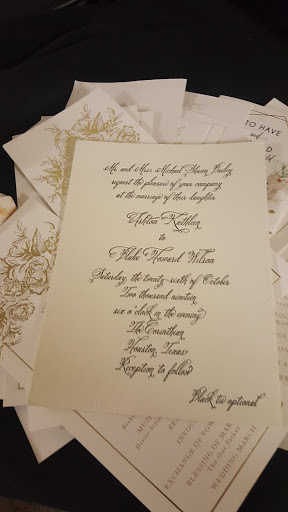 Mr. and Mrs. Michael Shawn Bailey
request the pleasure of your company
at the marriage of their daughter
Ashton Kathleen
to
Blake Howard Wilson
Saturday, the twenty-sixth of October
Two thousand nineteen
six o'clock in the evening
The Corinthian
Houston, Texas
Reception to follow
Black tie optional
TO HAVE
and
INVOC
EXCHANGE OF VOW
BLESSING OF MAR
WEDDING MARCH